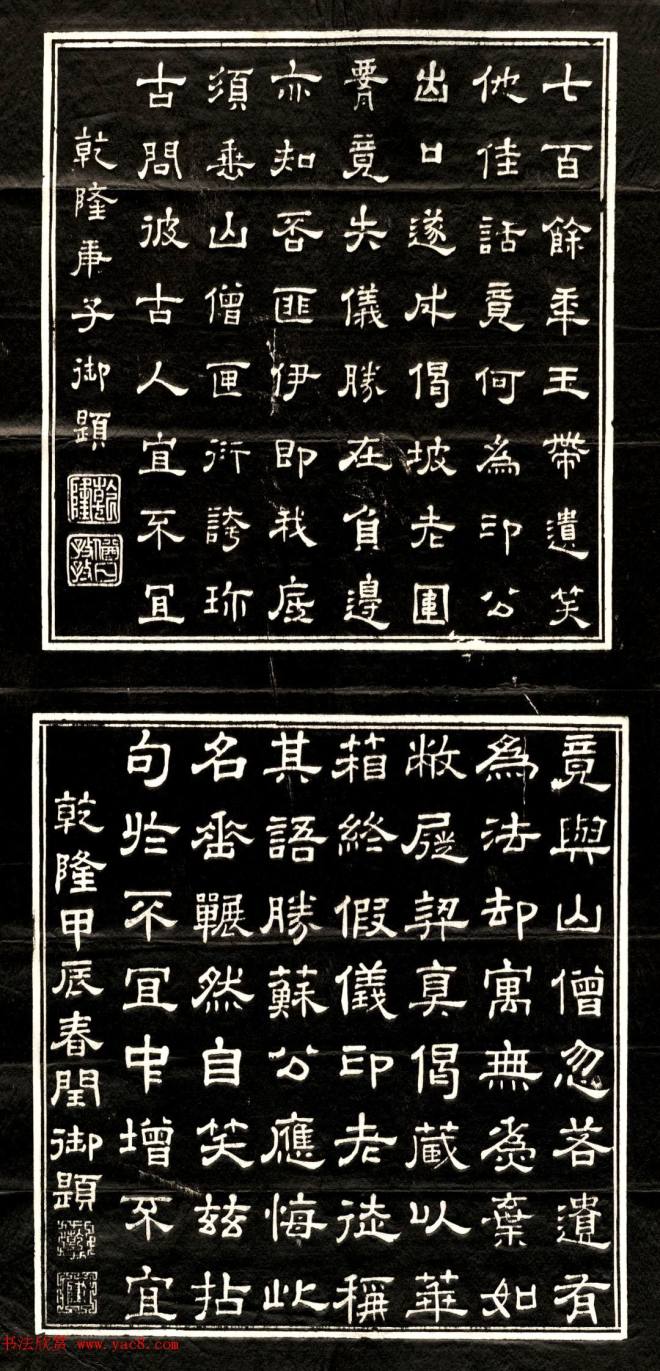 七百餘年玉帶遺笑
他佳話竟何為印公
出口遂成偈坡老圍
腰竟失儀勝在負邊
亦知否匪伊即我底
須垂山僧匣衍誇珎
古問彼古人宜不宜
乾隆庚子御題
乾隆
竟與山僧忽若遺有
為法却寓無為棄如
敝屣契真偈藏以華
箱終假儀印老徒稱
其語勝蘇公應悔此
名垂囅然自笑兹拈
句於不宜中增不宜
乾隆甲辰春閏御題
书法欣赏 www.yac8.com